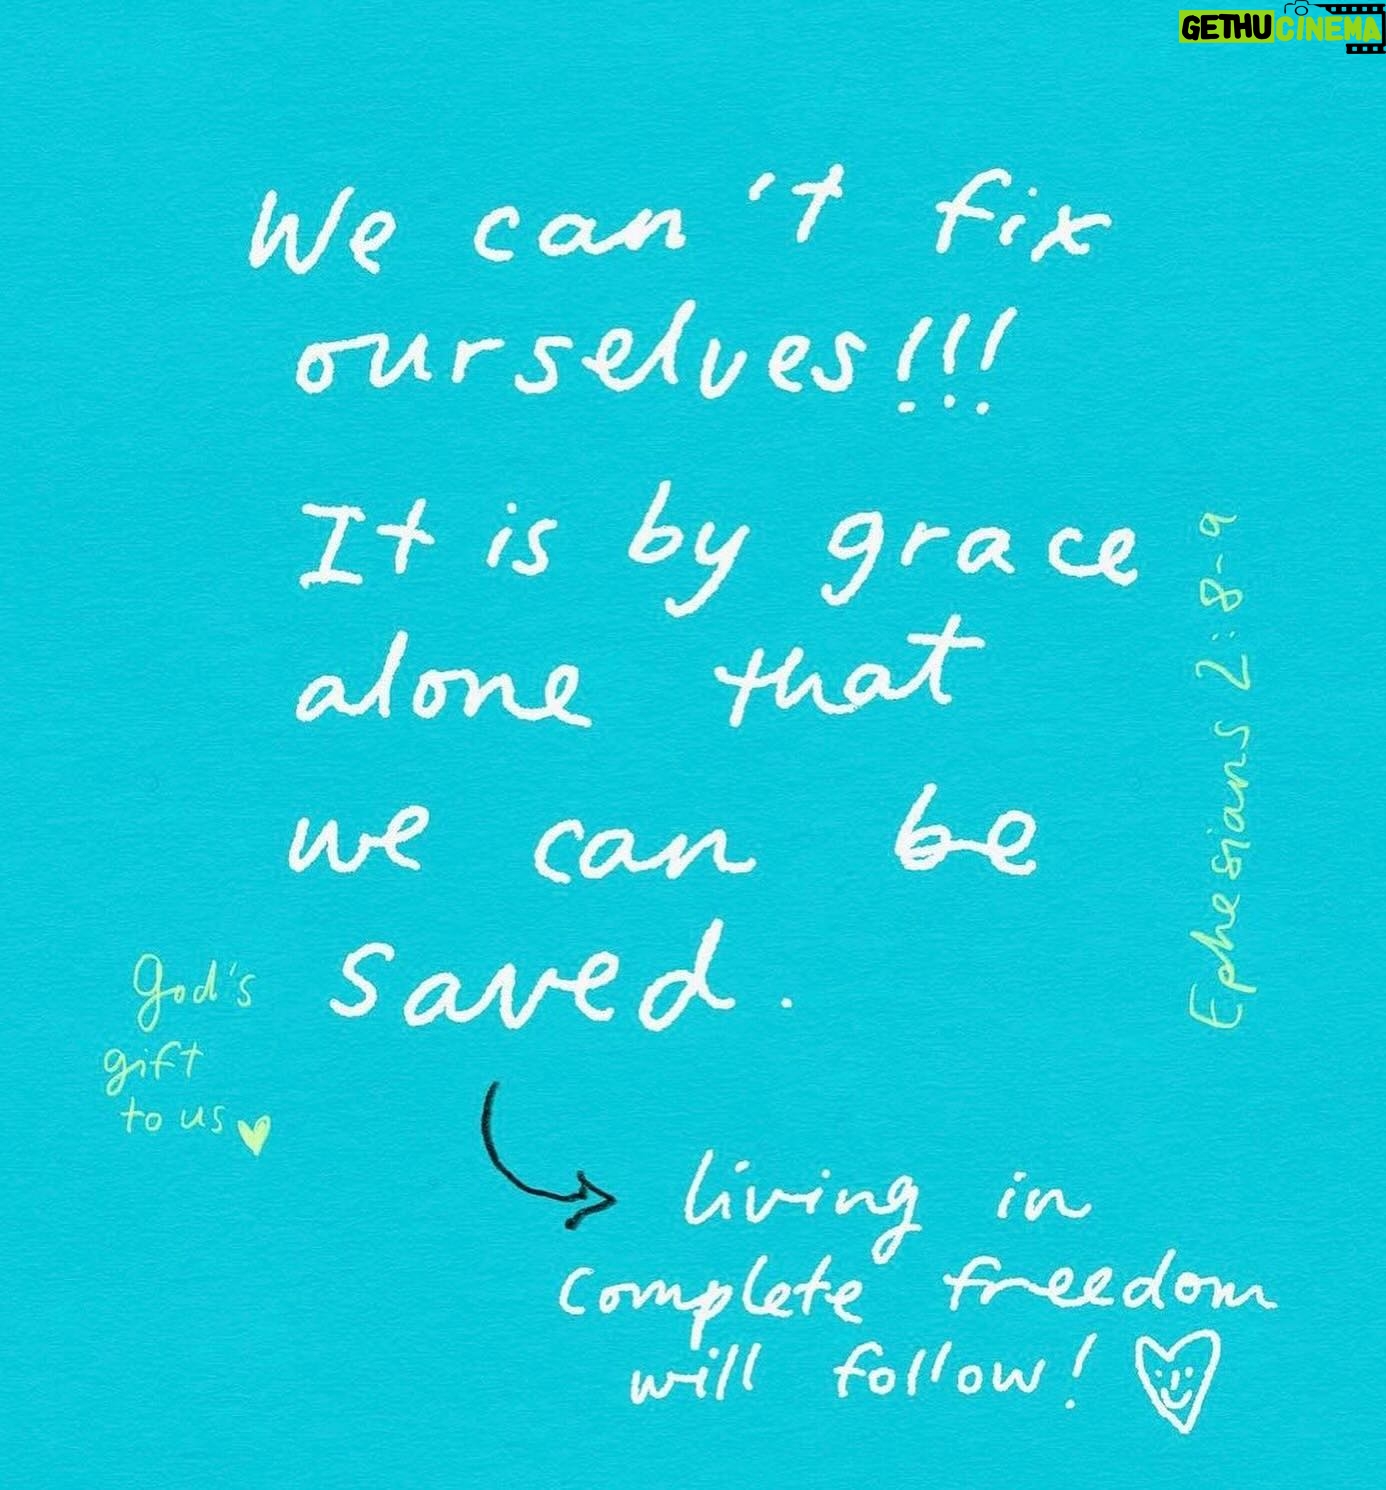 GETHUCINEMA
We can't fix
ourselves!!!
It is by grace
alone that
we can be
saved.
Ephesians 2:8-9
God's
gift
to us
living in
complete freedom
will follow!